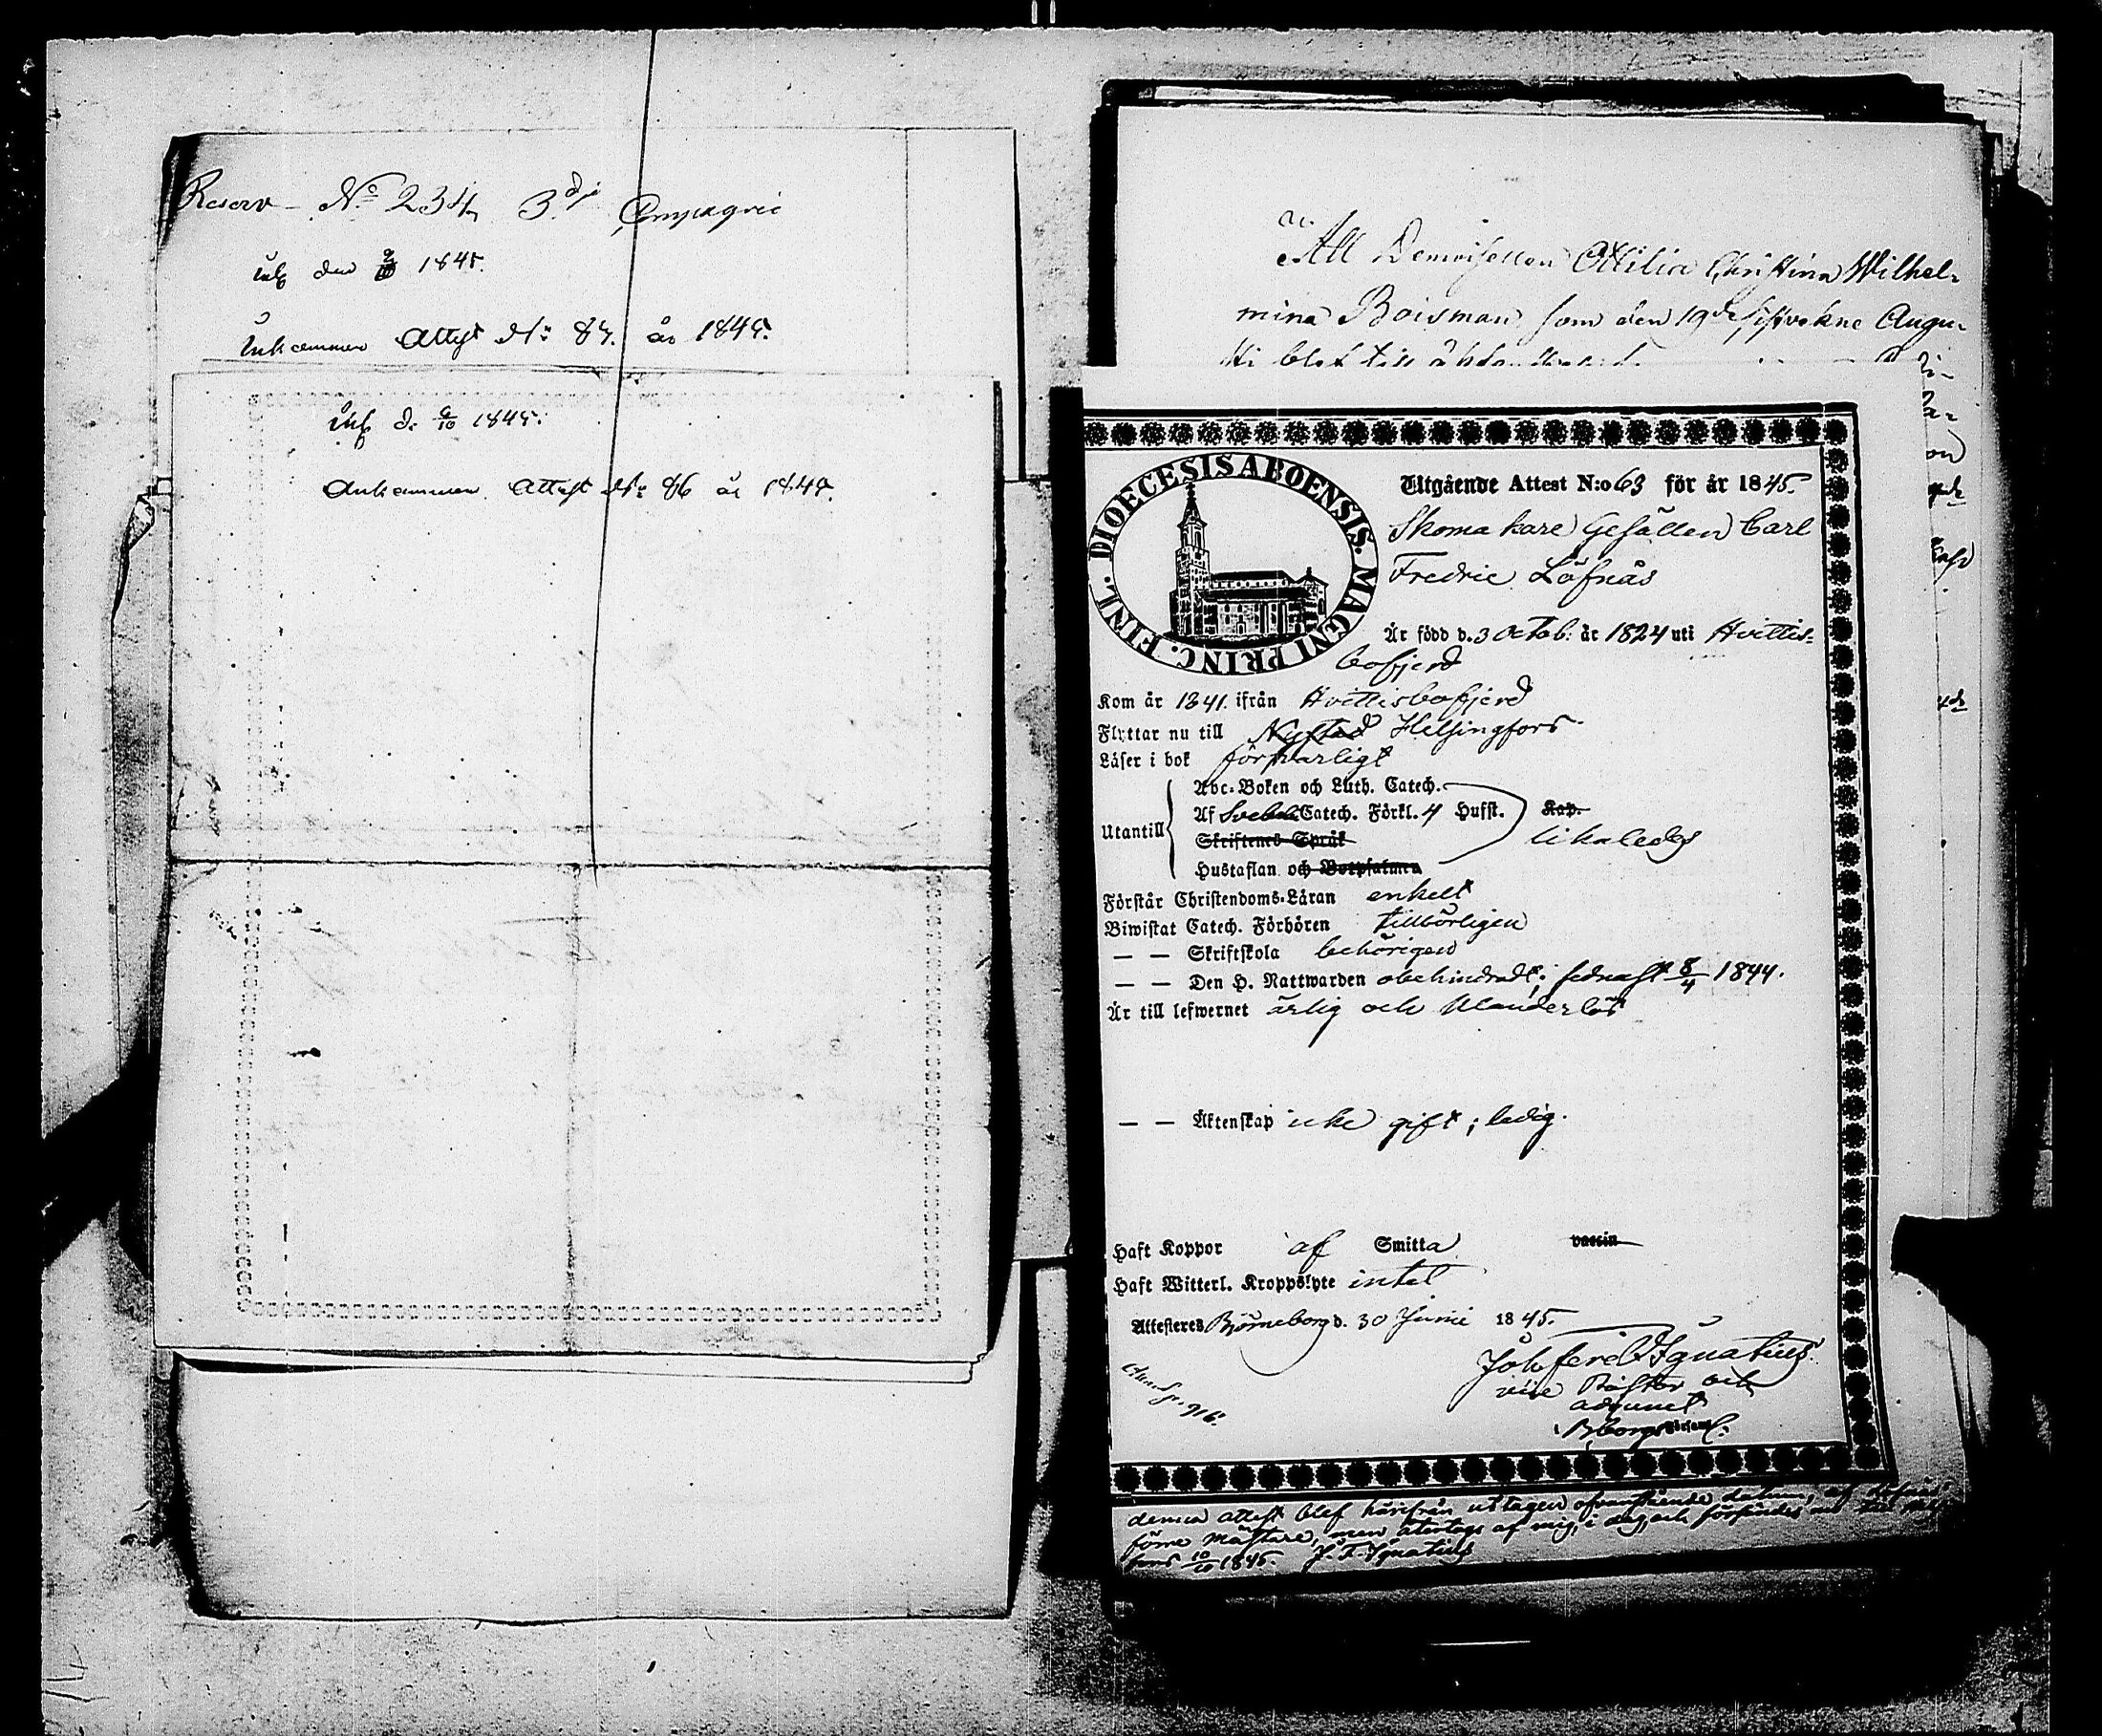 Reserv N:o 234 3dje Compagnie
Ink den 9/10 1845.
Inkommen Attest N:o 87. år 1845.
Ink d. 9/10 1845.
Inkommen Attest N:o 86 år 1845.
Att Demoisellen Ottilia Christina Wilhel-
mina Boisman, som den 19de sistvekne Augu-
sti blef till
FINL. DIOECESIS ABOENSIS. MAGNI PRINC.
Utgående Attest N:o 63 för år 1845.
Skomakare Gesällen Carl
Fredric Löfnäs
Är född d. 3 Octob: år 1824 uti Hvittis-
bofjerd
Kom år 1841. ifrån Hvittisbofjerd
Flyttar nu till Nystad Helsingfors
Läser i bok försvarligt
Utantill
Abc-Boken och Luth. Catech.
Af Svebel. Catech. Förkl. 4 Hufst. Kap.
Skriftenes Språk likaledes
Hustaflan och Botpsalmen
Förstår Christendoms-Läran enkelt
Biwistat Catech. Förhören tillbörligen
— — Skriftskola behörigen
— — Den H. Nattwarden obehindradt; sednast 8/4 1844.
Är till lefwernet ärlig och klanderlös
— — Äktenskap icke gift; ledig.
Haft Koppor af Smitta vaccin
Haft Witterl. Kroppslyte intet
Attesteres Björneborg d. 30 Junii 1845.
Joh. Ferd. Ignatius
vice Pastor och
adjunct
B:borgs
916.
denna attest blef härifrån uttagen ofvanstående datum, af
förre Mästare, men återtogs af mig, i dag, och försändes nu till
fors 10/10 1845. J. F. Ignatius